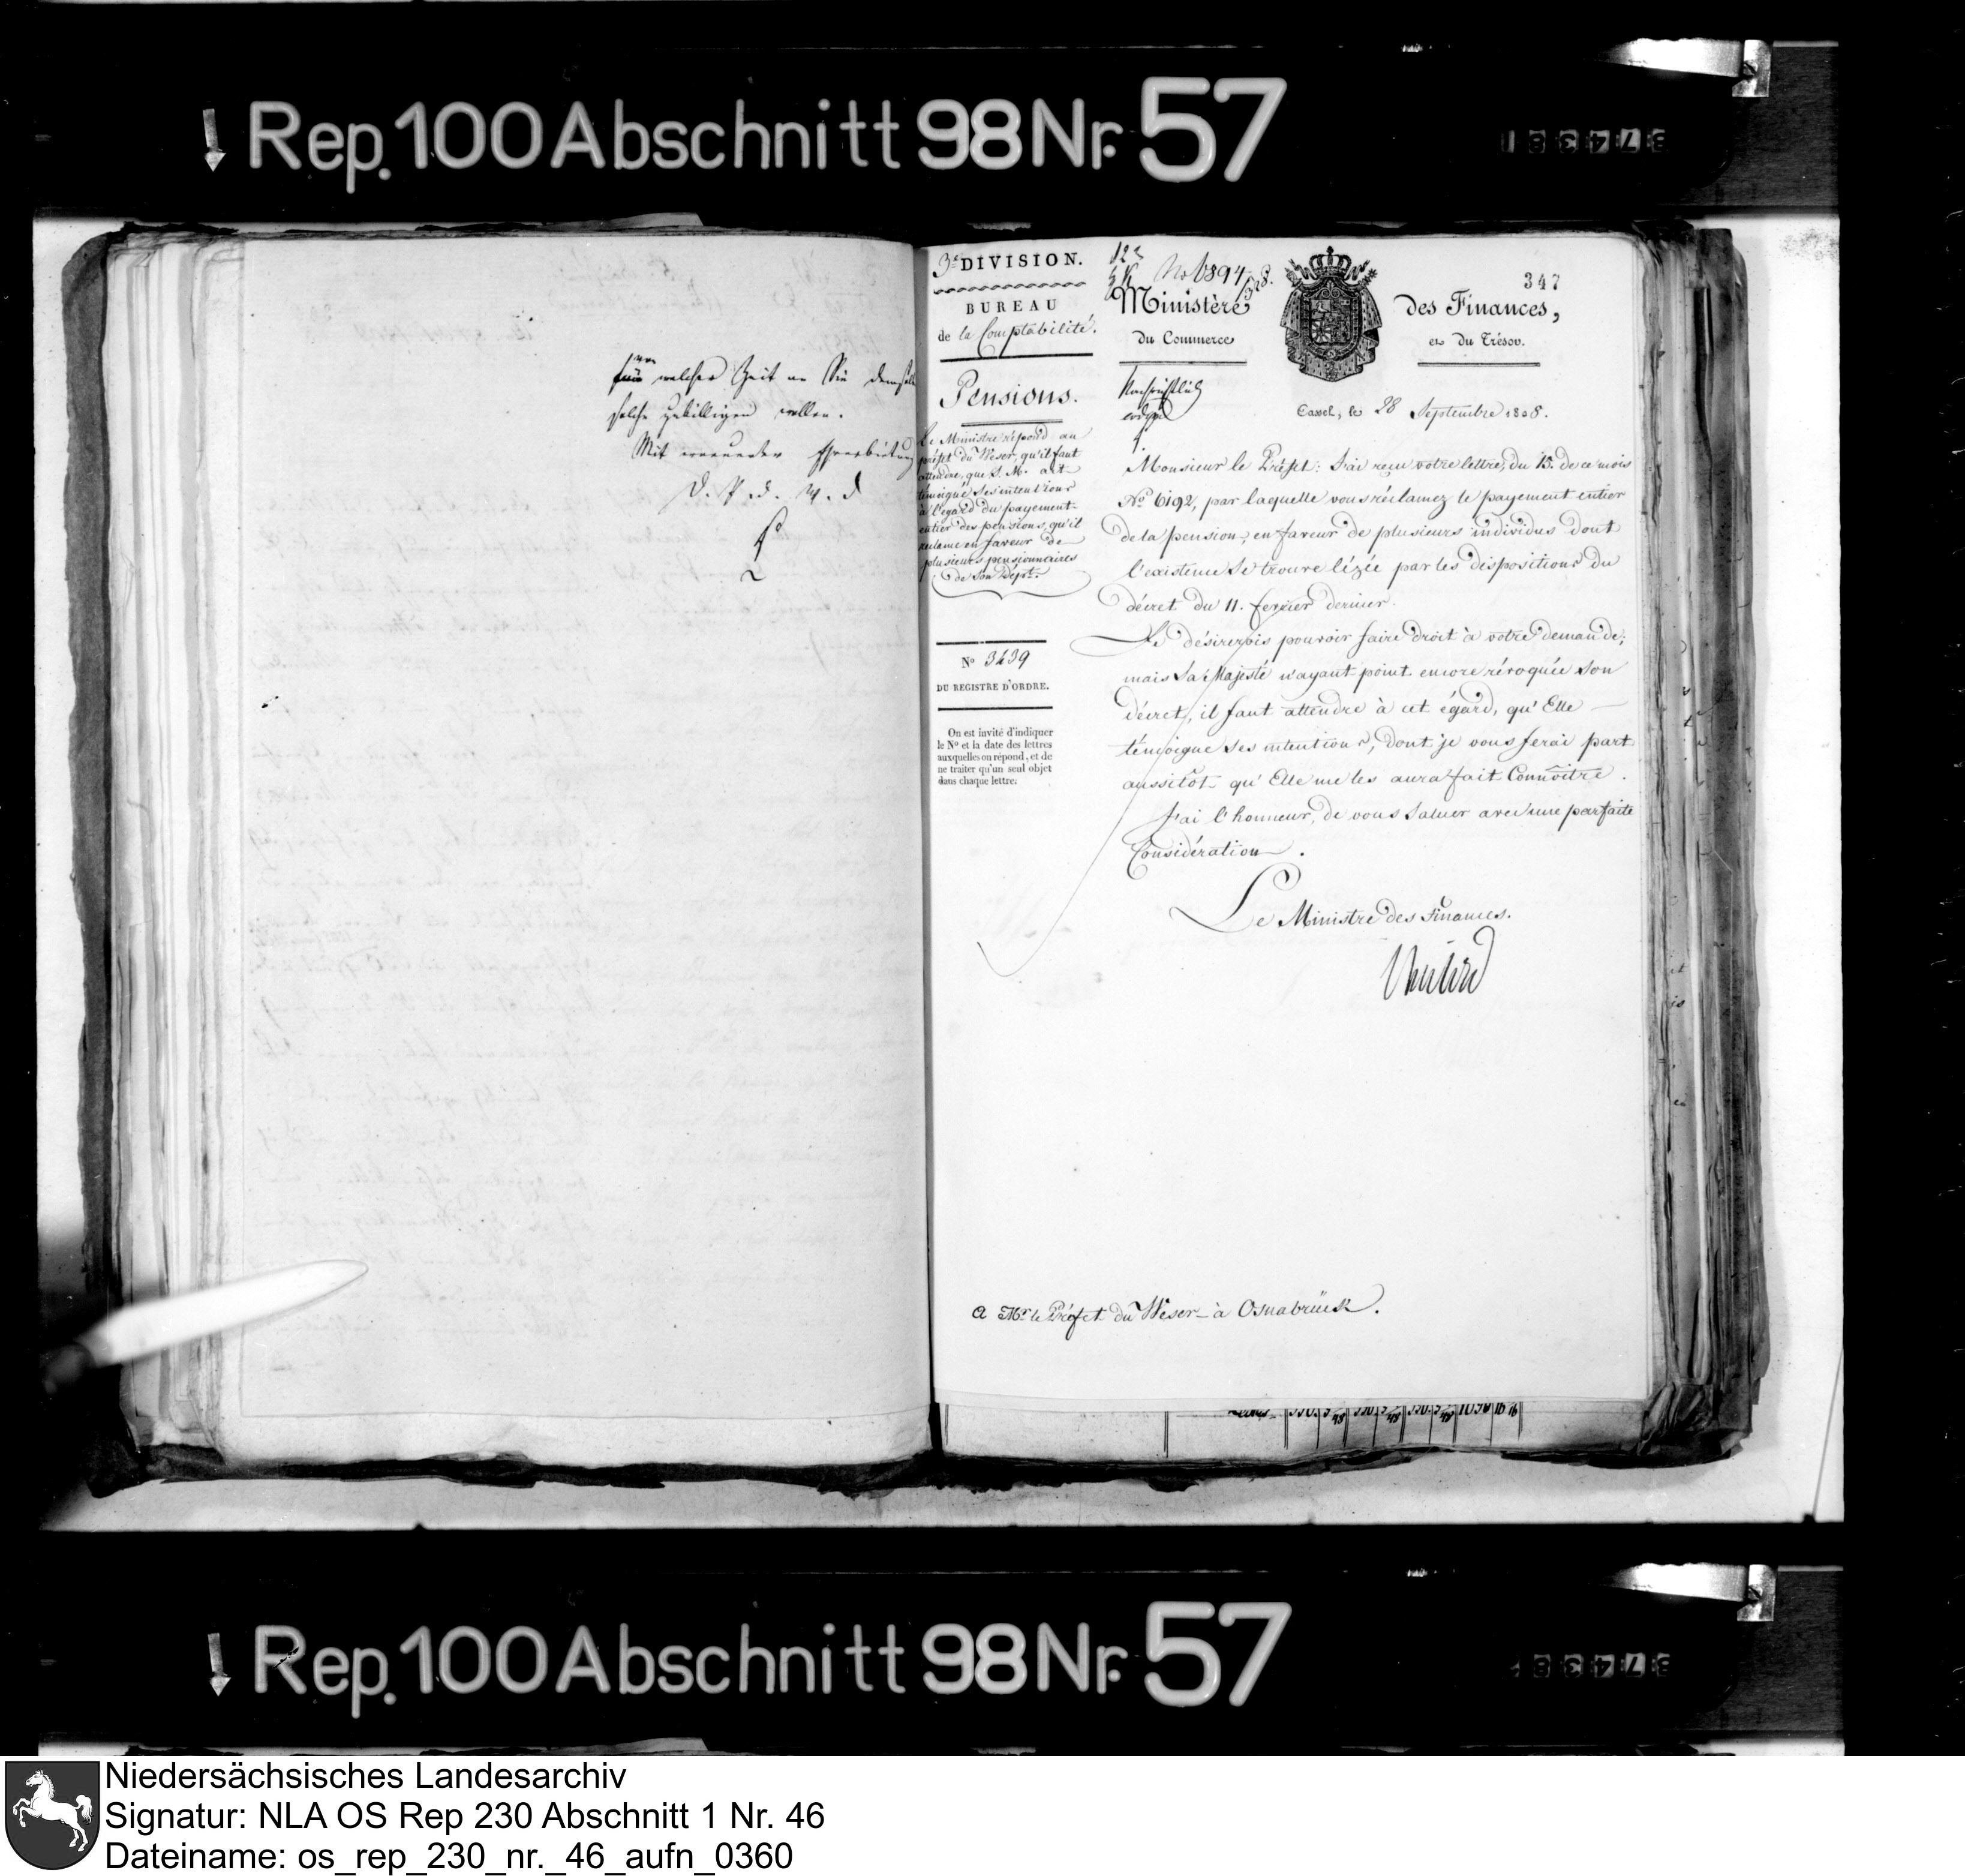 Rep. 100 Abschnitt 98 Nr. 57
von
welcher Zeit an Sie demselb
solche zubilligen wollen.
Mit erneuender Ehrerbietung
D. P. d. W. d
3e DIVISION.
BUREAU
de la Comptabilité.
Pensions.
Le Ministre répond au
préfet du Weser, qu'il faut
attendre, que S. M. ait
témoigné ses intentions
à l'égard du payement
entier des pensions, qu'il
réclame en faveur de
plusieurs pensionnaires
de son Dépt.
No 3439
DU REGISTRE D'ORDRE.
On est invité d'indiquer
le No et la date des lettres
auxquelles on répond, et de
ne traiter qu'un seul objet
dans chaque lettre.
347
Ministère des Finances,
du Commerce et du Trésor.
Cassel, le 28 Septembre 1808.
Monsieur le Préfet: J'ai reçu votre lettre, du 15. de ce mois
No 6192, par laquelle vous réclamez le payement entier
de la pension, en faveur de plusieurs individus dont
l'existence se trouve lézée par les dispositions du
décret du 11. fevrier dernier.
Je désirerois pouvoir faire droit à votre demande;
mais Sa Majesté n'ayant point encore révoquée son
décret, il faut attendre à cet égard, qu'Elle
témoigne ses intentions, dont je vous ferai part
aussitôt qu'Elle me les aura fait Connoître.
J'ai l'honneur, de vous saluer avec une parfaite
Considération.
Le Ministre des Finances.
a Mr. le Préfet du Weser à Osnabrück.
Rep. 100 Abschnitt 98 Nr. 57
Niedersächsisches Landesarchiv
Signatur: NLA OS Rep 230 Abschnitt 1 Nr. 46
Dateiname: os_rep_230_nr._46_aufn_0360